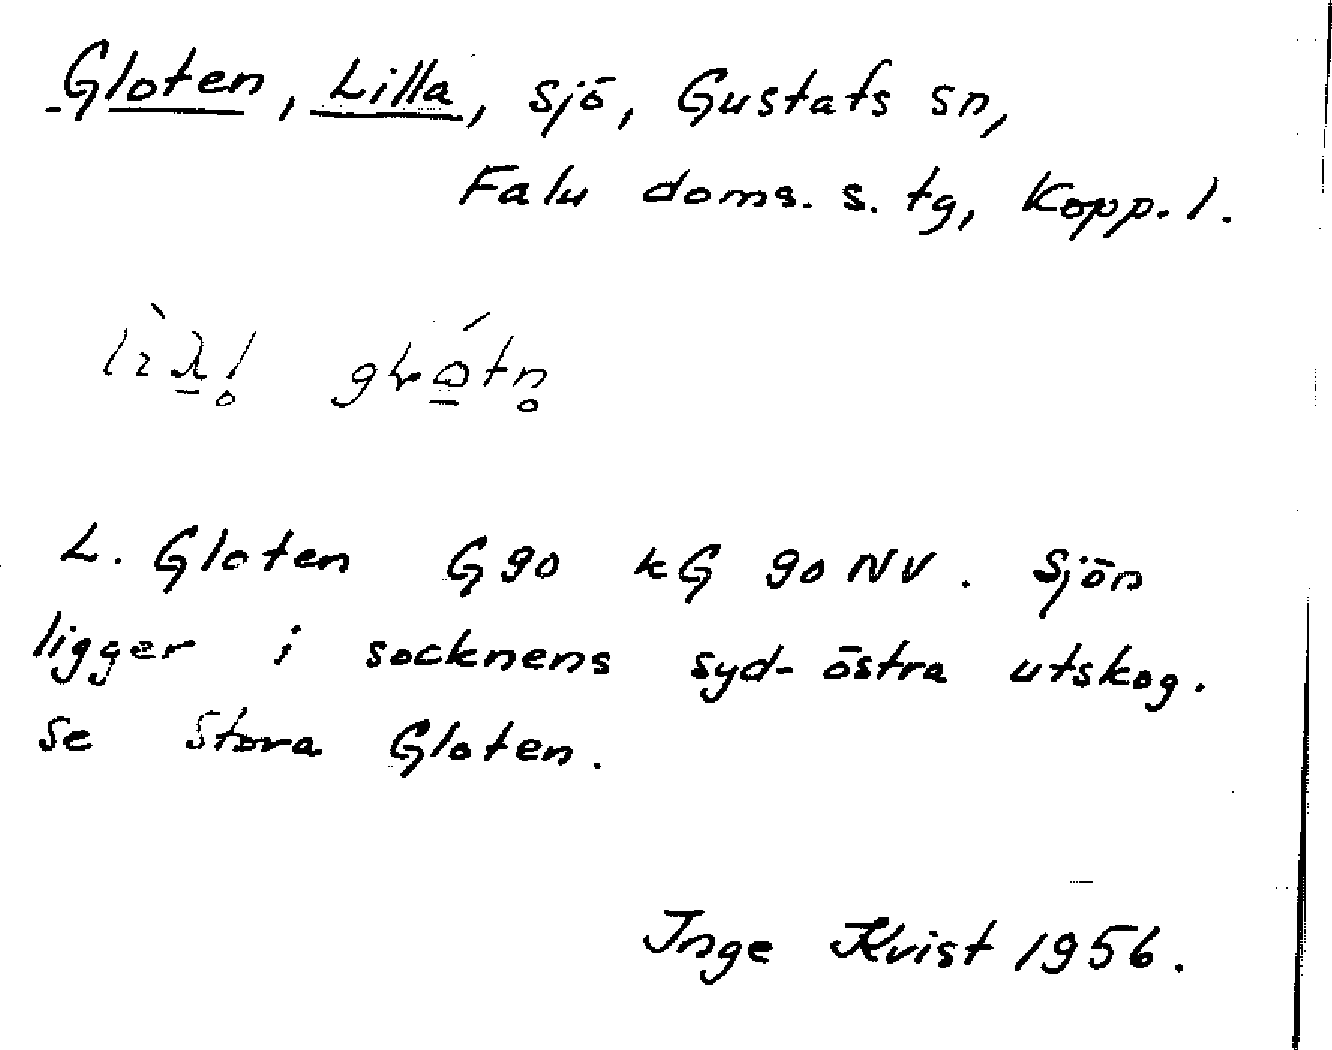 Gloten, Lilla, sjö, Gustafs sn,
Falu doms. s. tg, Kopp. l.
L. Gloten G90 kG 90 NV. Sjön
ligger i socknens syd-östra utskog.
Se Stora Gloten.
Inge Kvist 1956.